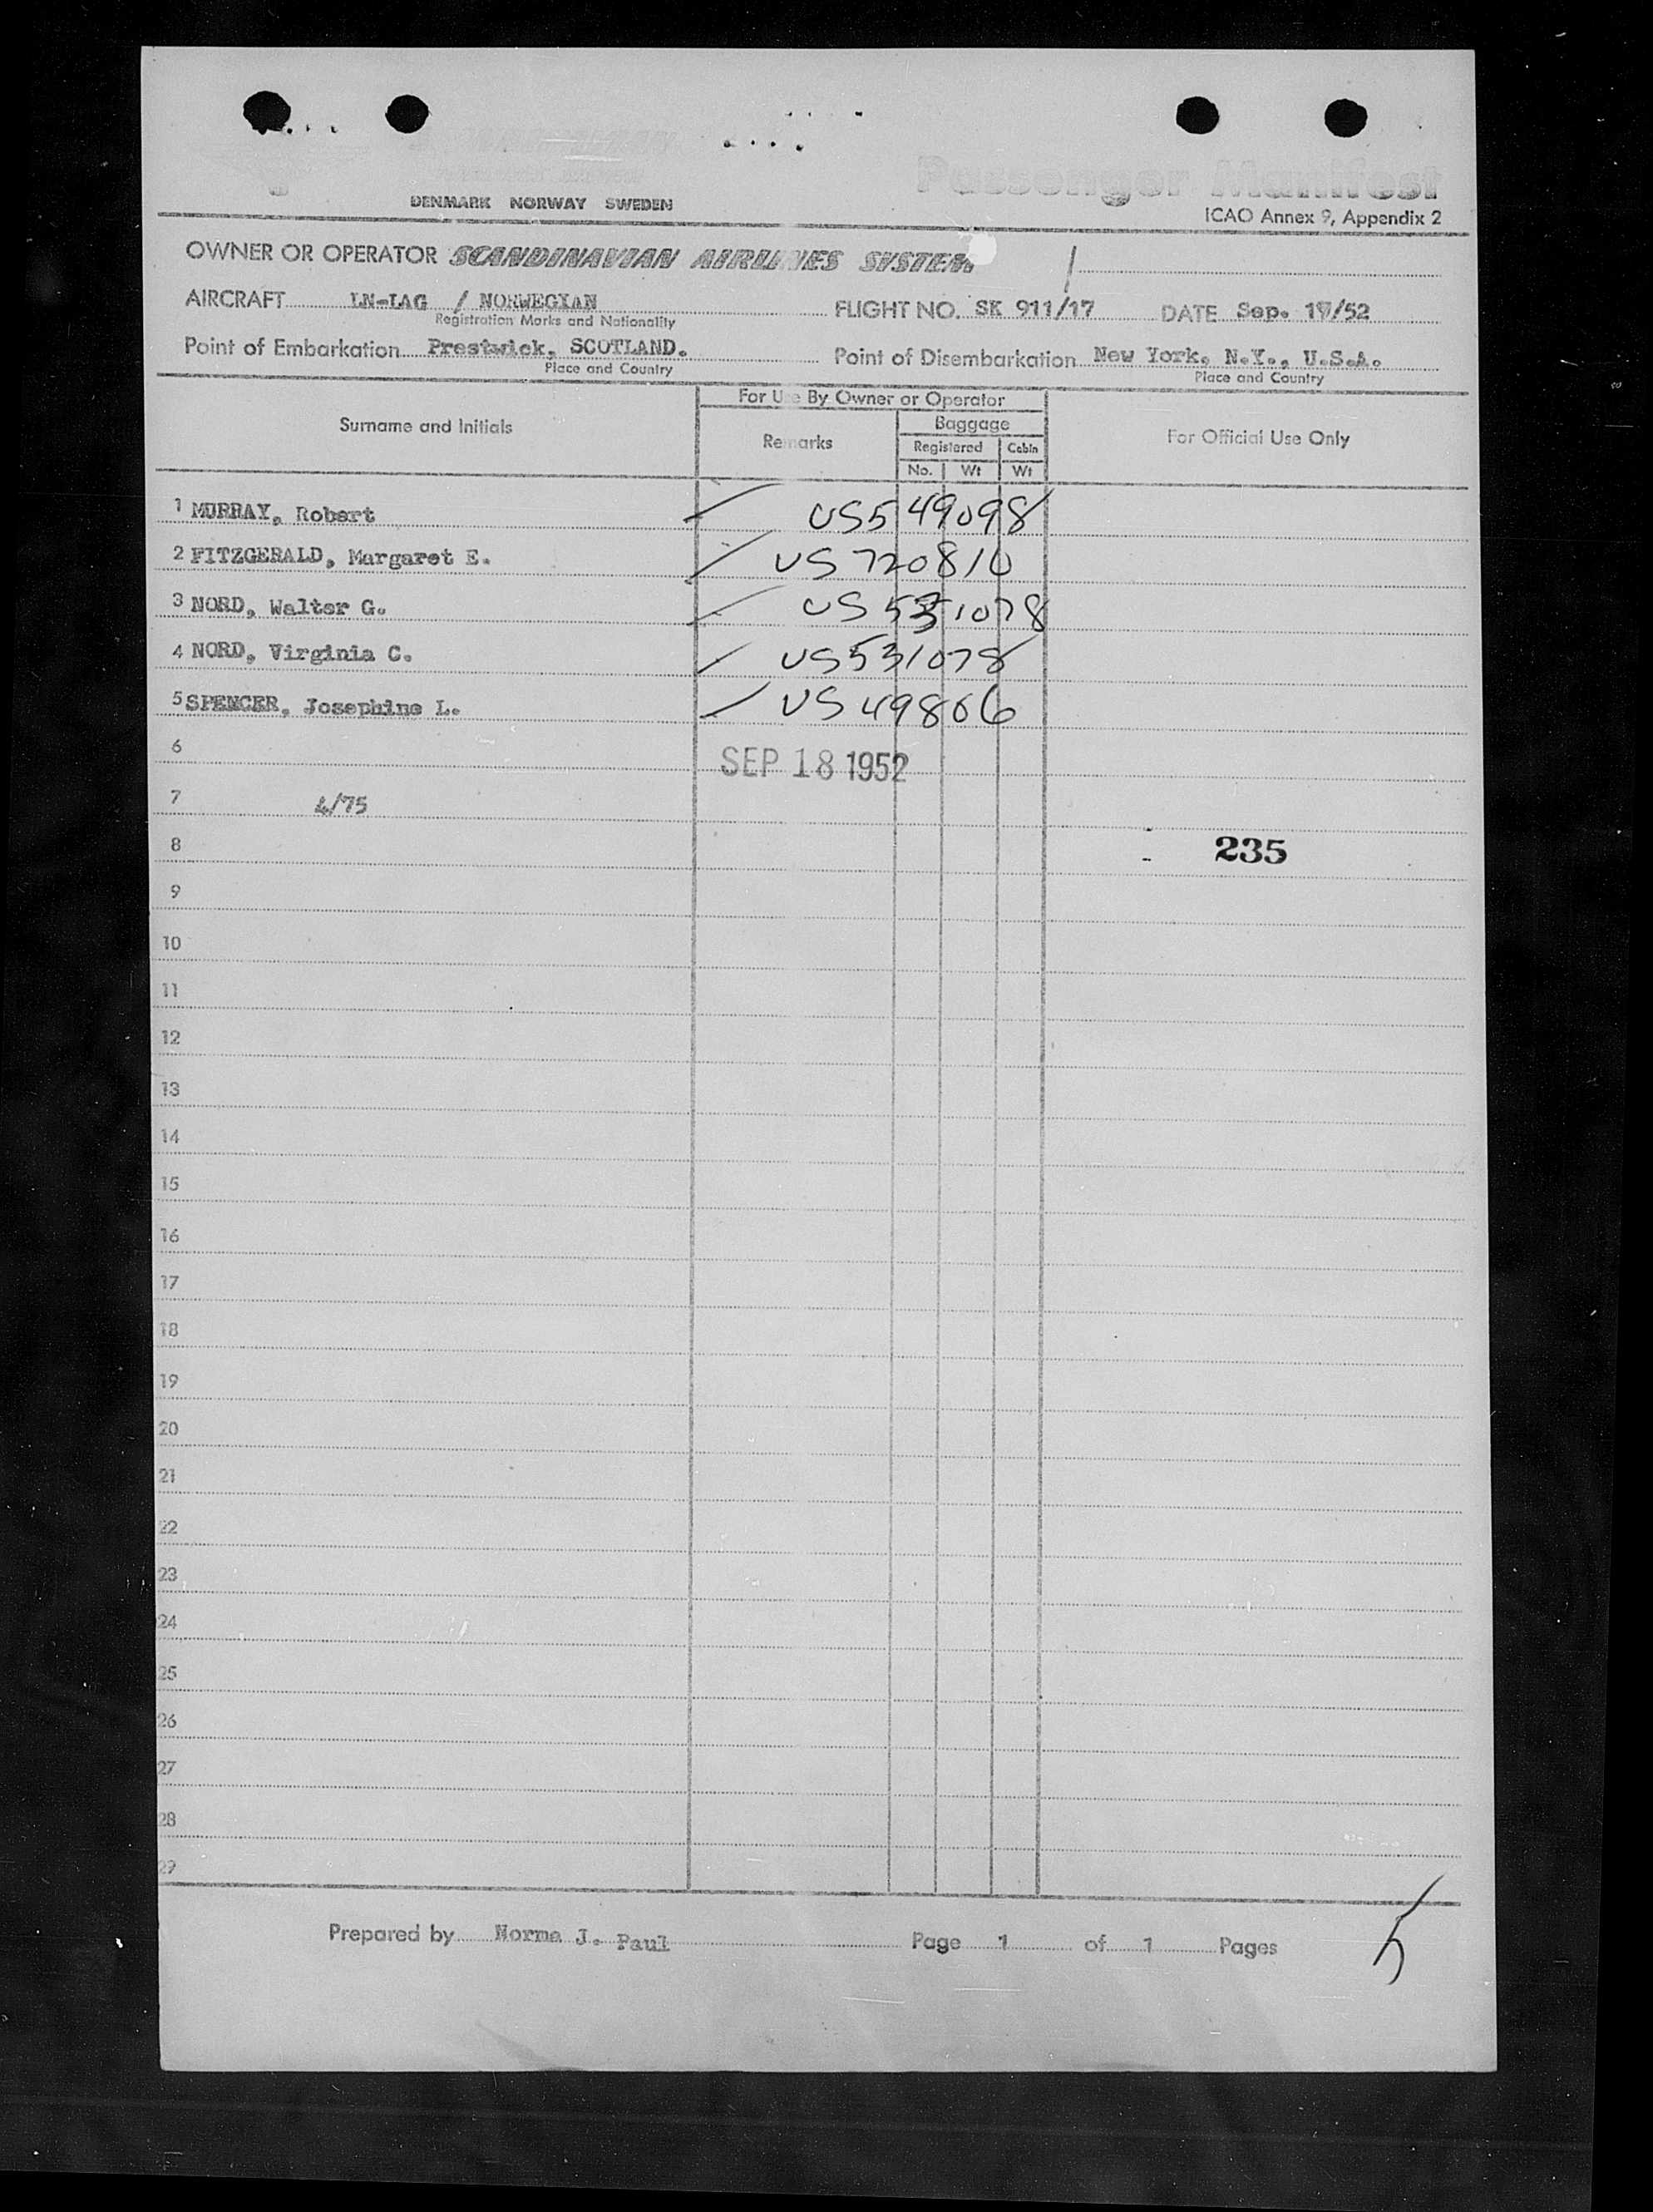 Passenger Manifest
DENMARK NORWAY SWEDEN
ICAO Annex 9, Appendix 2
OWNER OR OPERATOR SCANDINAVIAN AIRLINES SYSTEM
AIRCRAFT LN-LAG / NORWEGIAN FLIGHT NO. SK 911/17 DATE Sep. 17/52
Registration Marks and Nationality
Point of Embarkation Prestwick, SCOTLAND. Point of Disembarkation New York, N.Y., U.S.A.
Place and Country Place and Country
For Use By Owner or Operator
Surname and Initials Remarks Baggage For Official Use Only
Registered Cabin
No. Wt Wt
1 MURRAY, Robert US549098
2 FITZGERALD, Margaret E. US720810
3 NORD, Walter G. US 531078
4 NORD, Virginia C. US531078
5 SPENCER, Josephine L. US49806
6 SEP 18 1952
7 4/75
8 235
9
10
11
12
13
14
15
16
17
18
19
20
21
22
23
24
25
26
27
28
29
Prepared by Norma J. Paul Page 1 of 1 Pages 5